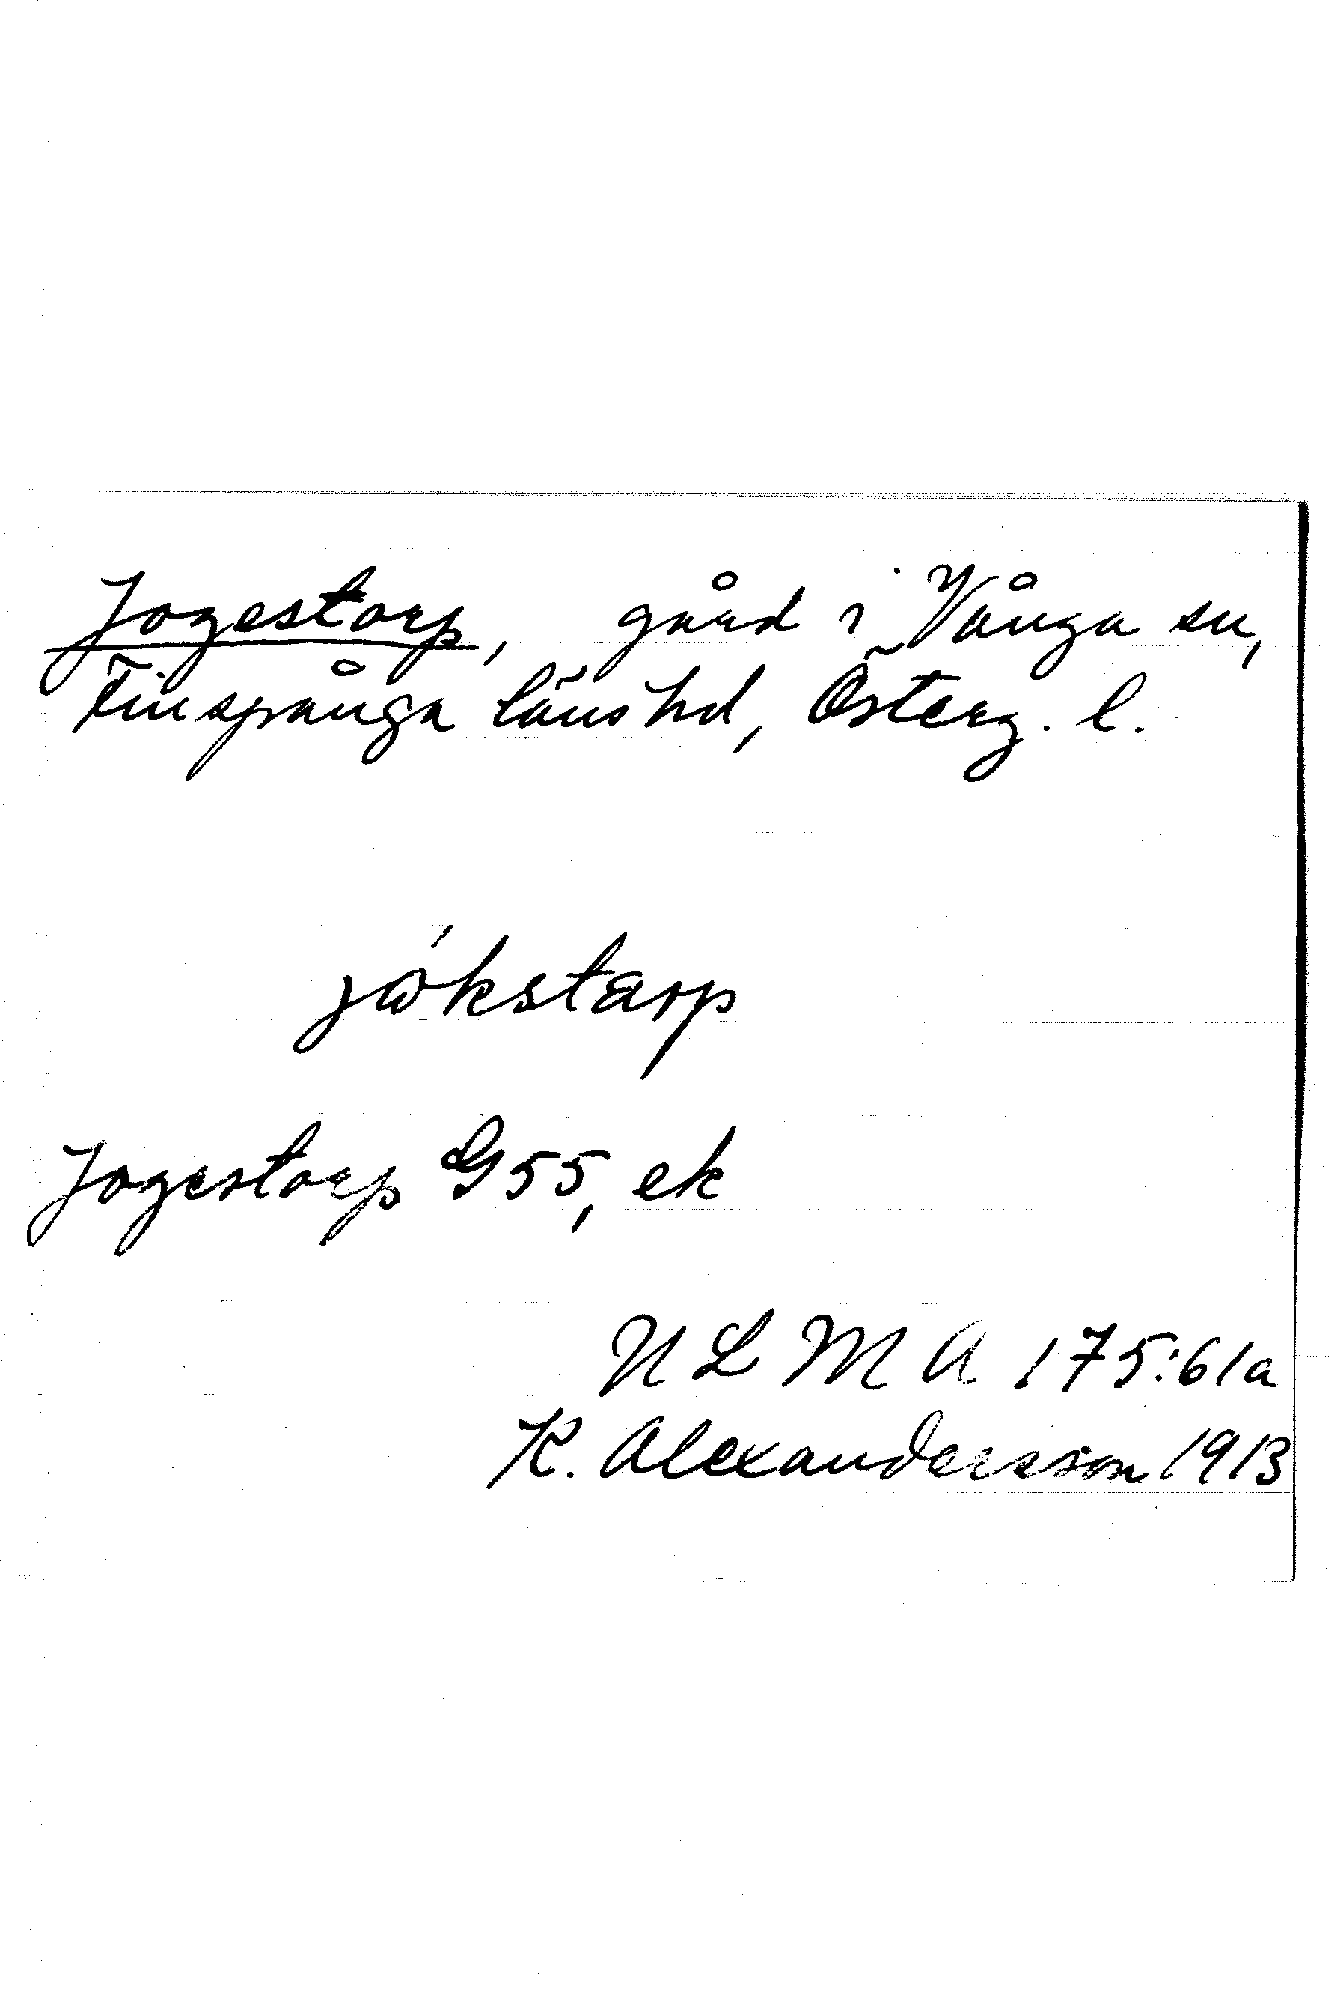 Jogestorp, gård i Vånga sn,
Finspånga läns hd, Österg. l.
jώkstarp
Jogestorp G55, ek
N L M A 175:61a
K. Alexandersson 1913